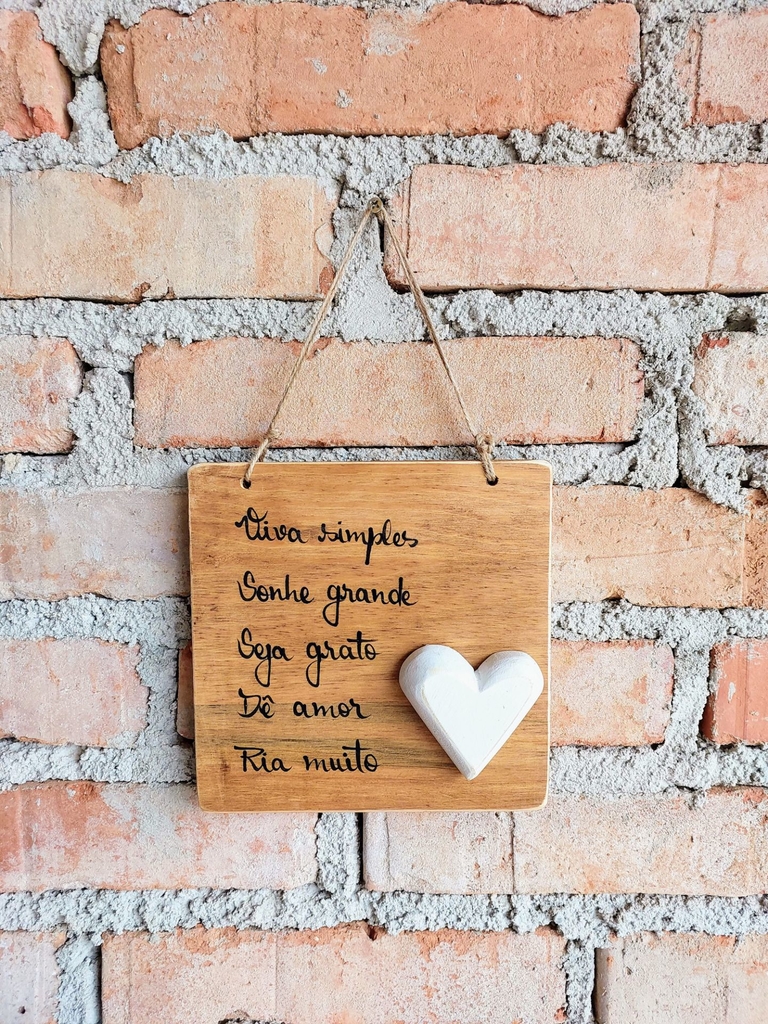 Viva simples
Sonhe grande
Seja grato
Dê amor
Ria muito